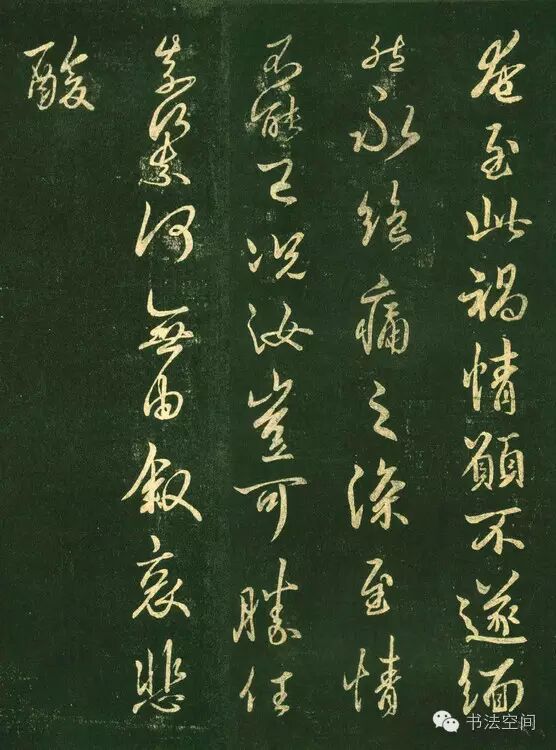 奄至此禍情願不遂緬
然永絕痛之深至情
不能已況汝豈可勝任
奈何奈何無由敘哀悲
酸
书法空间